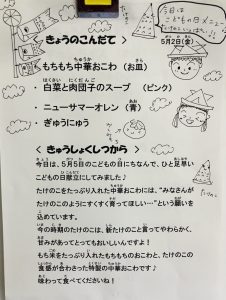 今日は
こどもの日メニュー
たけのこいっぱい!!
< きょうのこんだて >
5月2日(金)
もちもち中華おこわ (お皿)
・ 白菜と肉団子のスープ (ピンク)
・ ニューサマーオレン (青)
・ ぎゅうにゅう
< きゅうしょくしつから >
今日は、5月5日のこどもの日にちなんで、ひと足早い
こどもの日献立にしてみました♪
たけのこをたっぷり入れた中華おこわには、"みなさんが
たけのこのようにすくすく育ってほしい…"という願いを
込めています。
今の時期のたけのこは、新たけのこと言ってやわらかく、
甘みがあってとってもおいしいんですよ!
もち米をたっぷり入れたもちもちのおこわと、たけのこの
食感が合わさった特製の中華おこわです♪
味わって食べてくださいね!
たけのこ